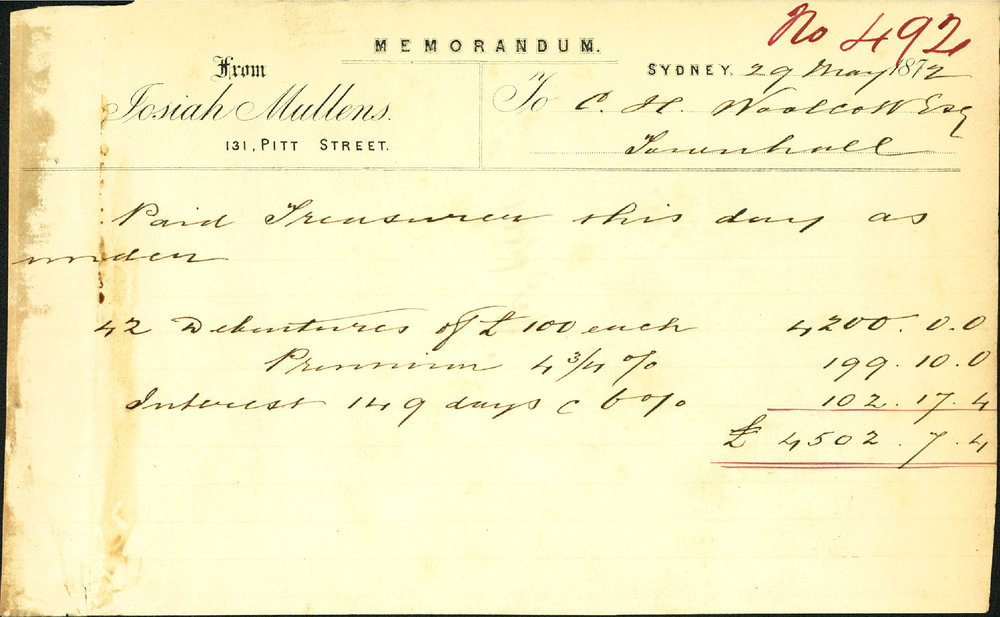 No 492
MEMORANDUM.
From
Josiah Mullens.
131, PITT STREET.
SYDNEY, 29 May 1872
To C. H. Woolcott Esq
Townhall
Paid Treasurer this day as
under
42 Debentures of £100 each 4200.0.0
Premium 4 3/4 % 199.10.0
Interest 149 days @ 6 % 102.17.4
£ 4502.7.4